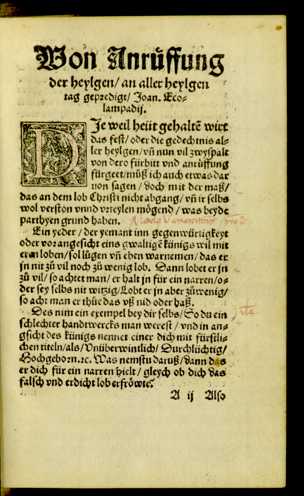 Von Anrůffung
der heylgen/ an aller heylgen
tag gepredigt/ Joan. Eco-
lampadij.
DJe weil heüt gehaltē wirt
das fest/ oder die gedechtnis al-
ler heylgen/ vñ nun vil zwyspalt
von dero fürbitt vnd anrüffung
fürgeet/ müß ich auch etwas dar
von sagen/ doch mit der maß/
das an dem lob Christi nicht abgang/ vñ ir selbs
wol verston vnnd vrteylen mögend/ was beyde
parthyen grund haben.
Ein yeder/ der yemant inn gegenwürtigkeyt
oder vor angesicht eins gwaltigē künigs wil mit
eren loben/ sol lügen vñ eben warnemen/ das er
jn nit zů vil noch zů wenig lob. Dann lobet er jn
zů vil/ so achtet man/ er halt jn für ein narren/ o-
der sey selbs nit witzig/ Lobt er jn aber zů wenig/
so acht man er thüe das vß nid oder haß.
Des nim ein exempel bey dir selbs/ So du ein
schlechter handtwercks man werest/ vnd in ang-
sicht des künigs nennet einer dich mit fürstli-
chen titeln/ als/ Vnüberwintlich/ Durchlüchtig/
Hochgeborn. ꝛc. Was nemstu daruß/ dann das
er dich für ein narren hielt/ gleych ob dich das
falsch vnd erdicht lob erfröwte?
A ij Also